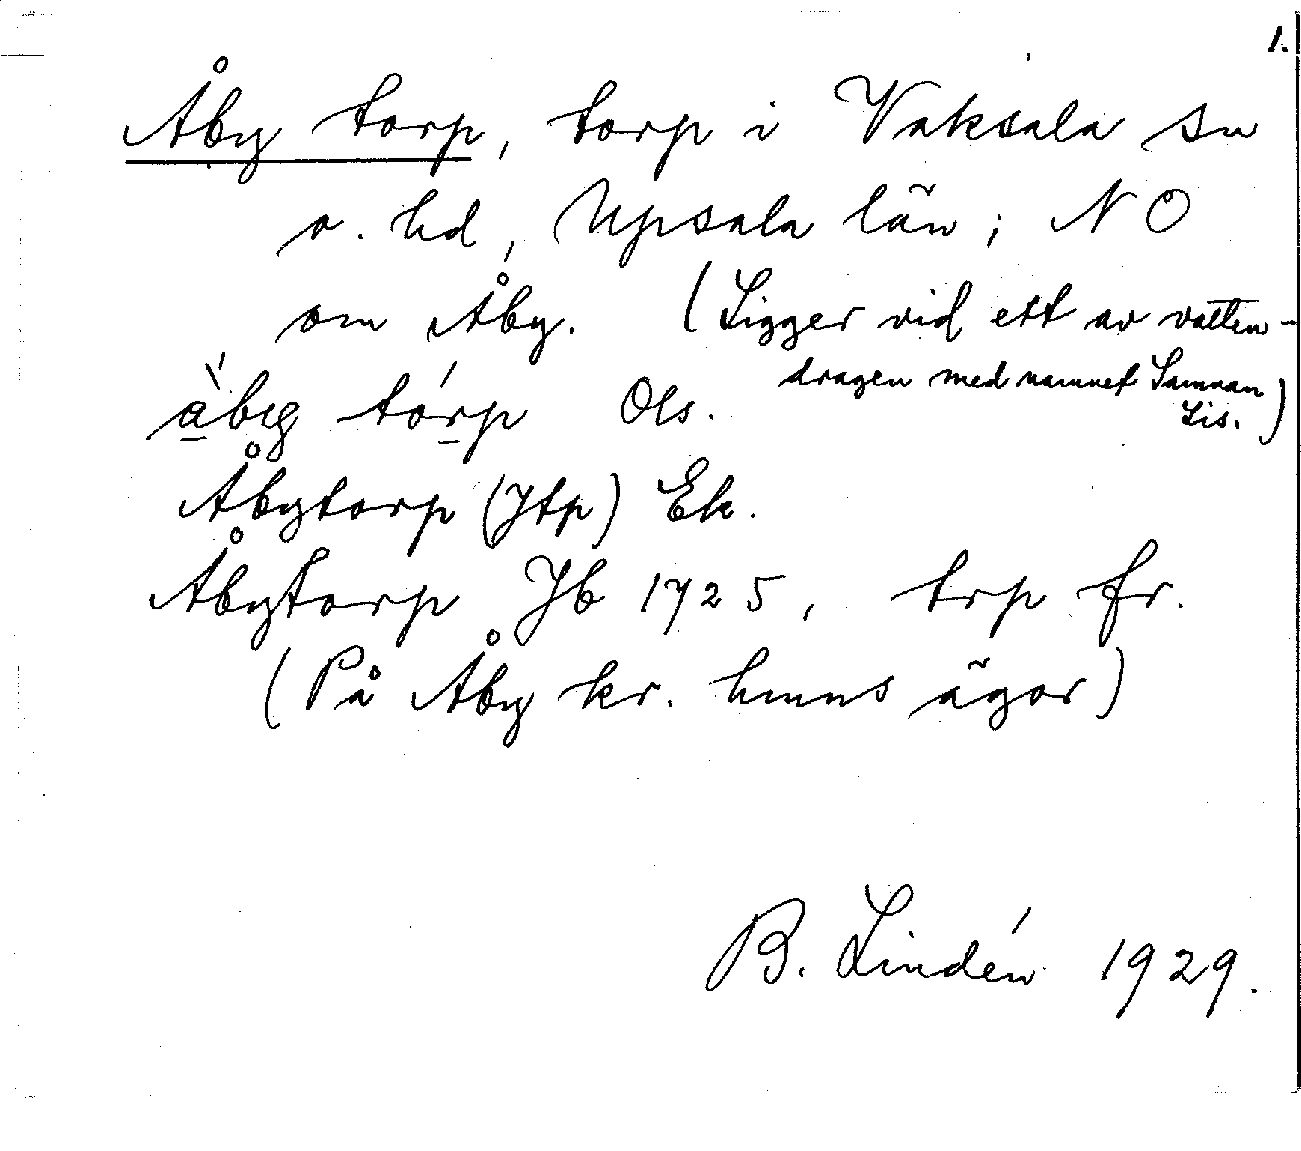 1.
Åby torp, torp i Vaksala sn
o. hd, Upsala län; NO
om Åby. (Ligger vid ett av vatten-
dragen med namnet Samnan
Lis.)
àbyg tórp Ols.
Åbytorp (Jtp) Ek.
Åbytorp Jb 1725, trp fr.
(På Åby kr. hmns ägor)
B. Lindén 1929.